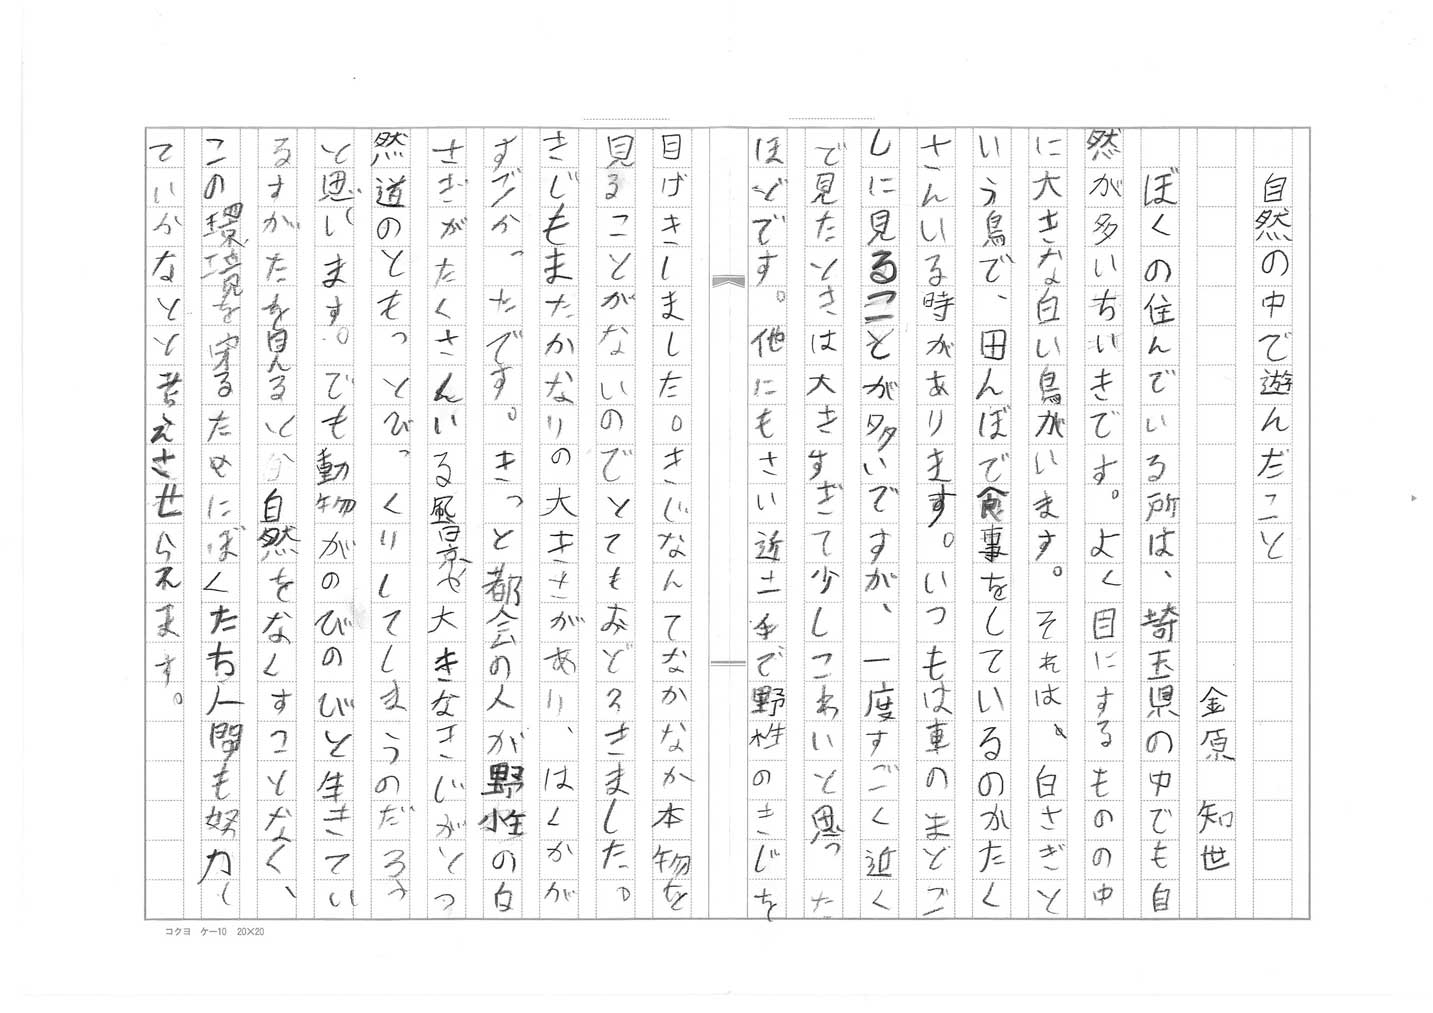 自然の中で遊んだこと
金原 知世
ぼくの住んでいる所は、埼玉県の中でも自
然が多いちいきです。よく目にするものの中
に大きな白い鳥がいます。それは、白さぎと
いう鳥で、田んぼで食事をしているのがたく
さんいる時があります。いつもは車のまどご
しに見ることが多いですが、一度すごく近く
で見たときは大きすぎて少しこわいと思った
ほどです。他にもさい近土手で野性のきじを
目げきしました。きじなんてなかなか本物を
見ることがないのでとてもおどろきました。
きじもまたかなりの大きさがあり、はくかが
すごかったです。きっと都会の人が野性の白
さぎがたくさんいる風景や大きなきじがとつ
然道のともっとびっくりしてしまうのだろう
と思います。でも動物がのびのびと生きてい
るすがたを見ると自然をなくすことなく、
この環境を守るためにぼくたち人間も努力し
ていかなとと考えさせられます。
コクヨ ケー10 20×20